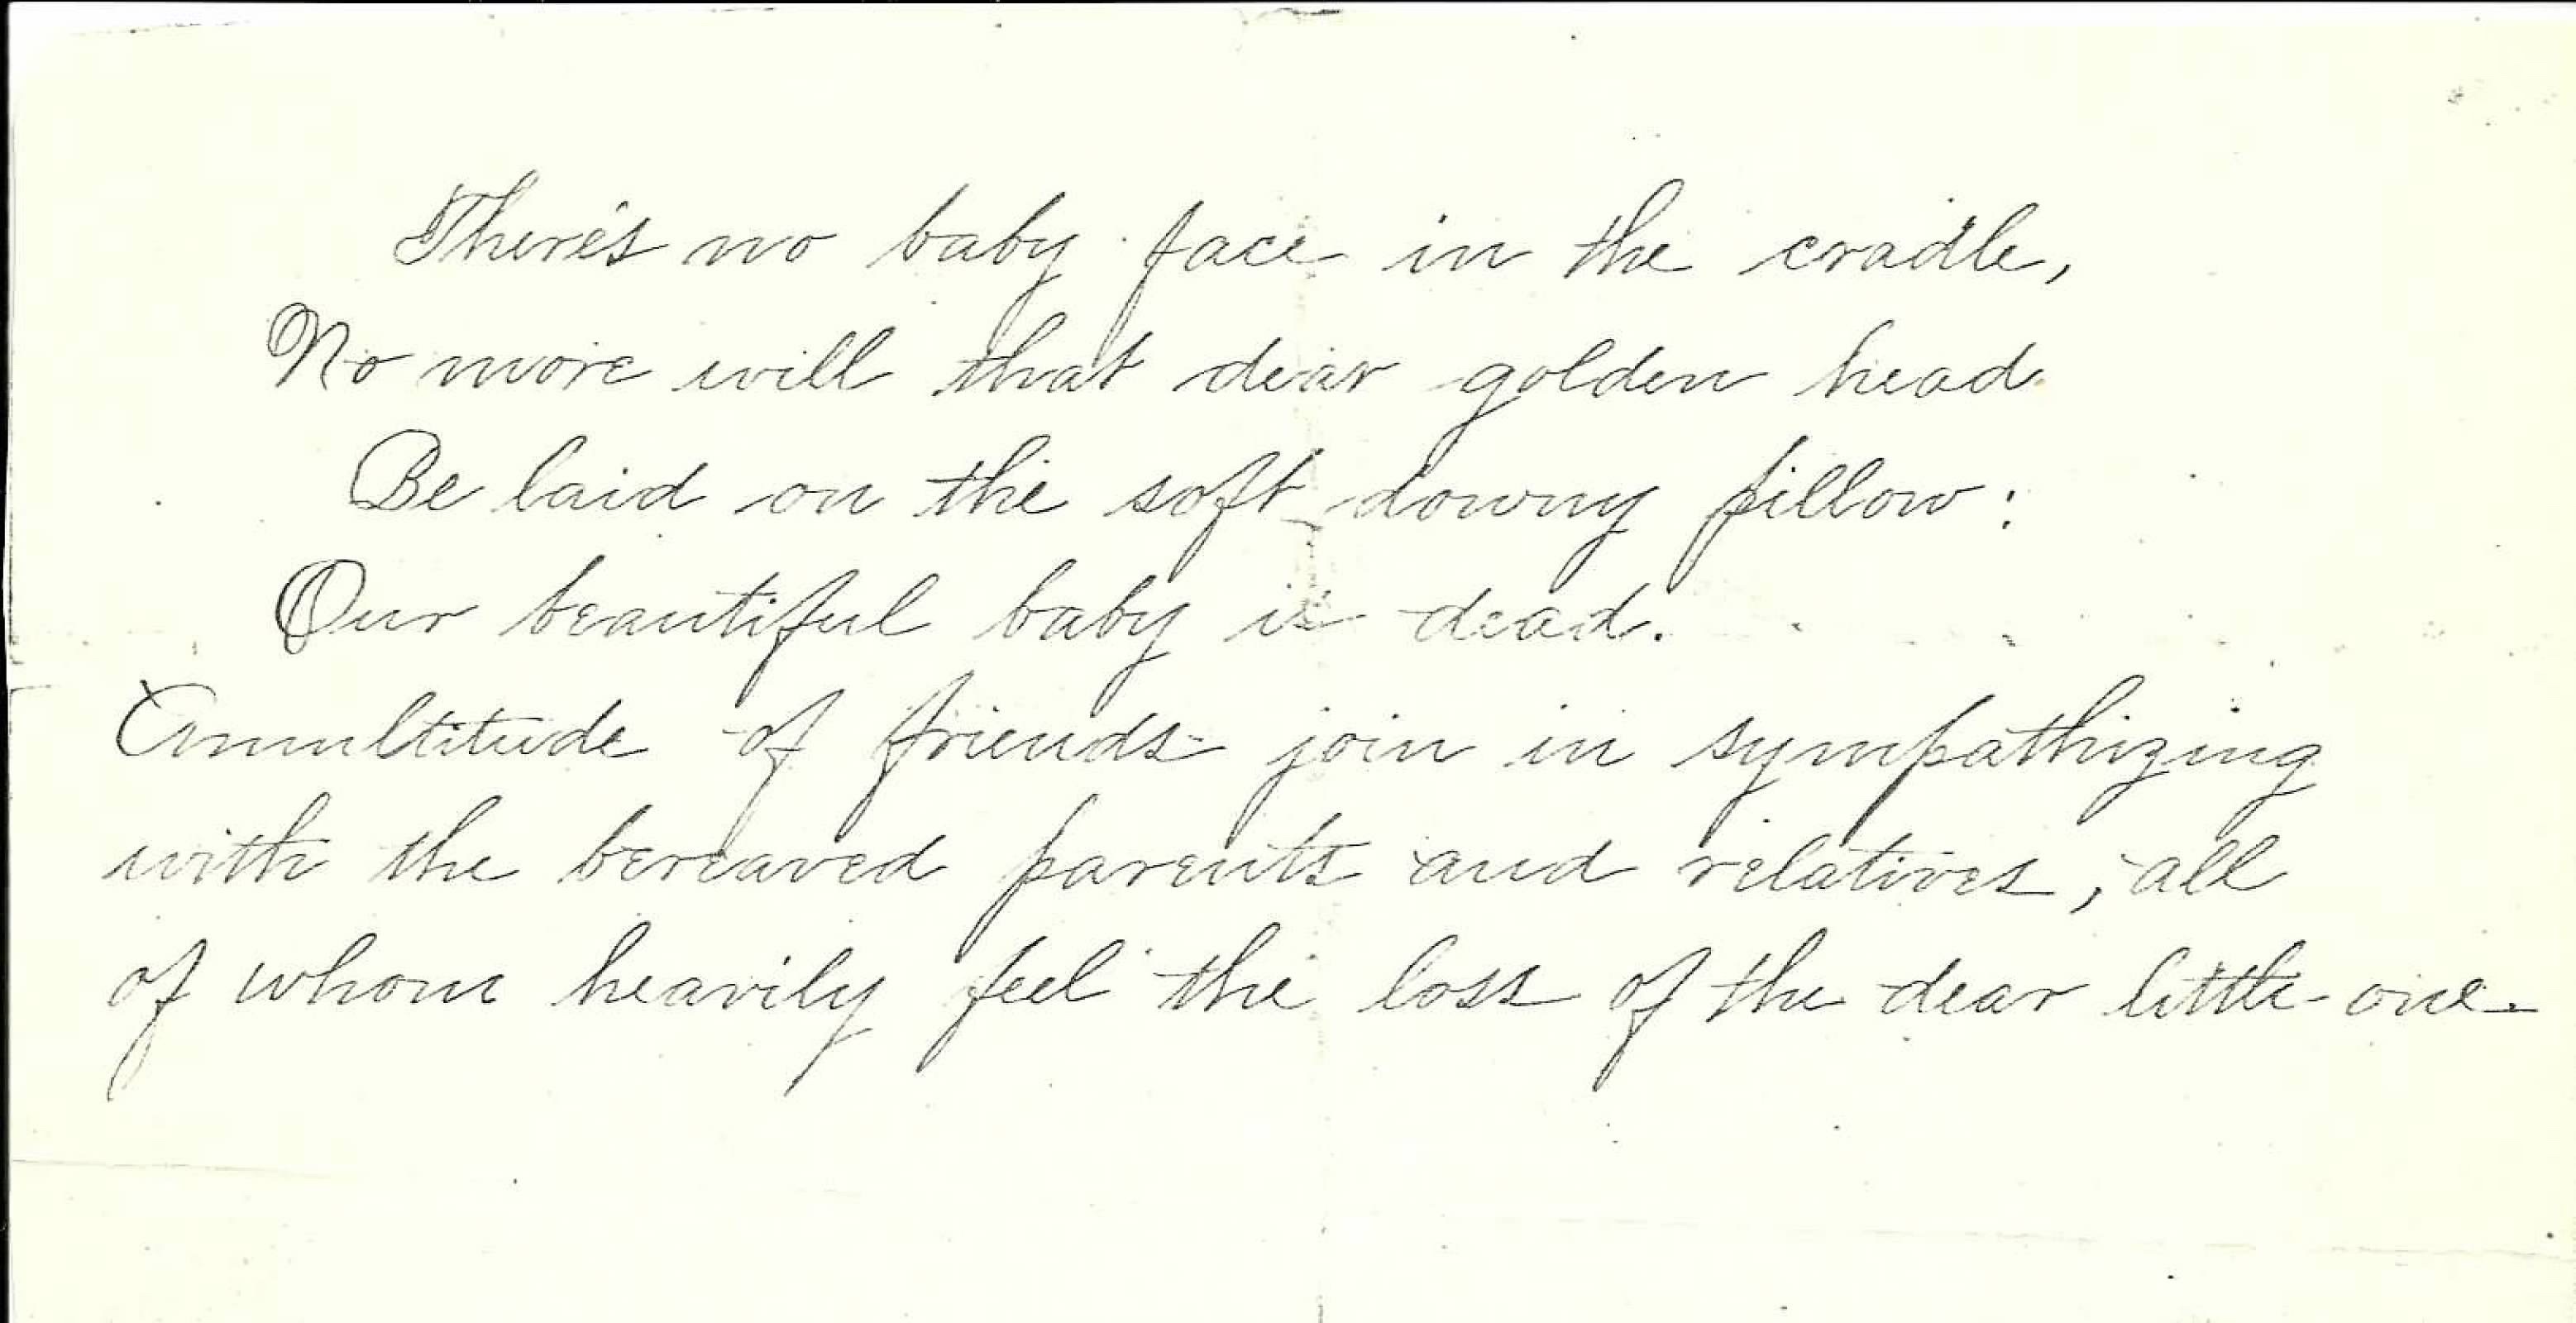 There's no baby face in the cradle,
No more will that dear golden head
Be laid on the soft downy pillow:
Our beautiful baby is dead.
A multitude of friends join in sympathizing
with the bereaved parents and relatives, all
of whom heavily feel the loss of the dear little one.